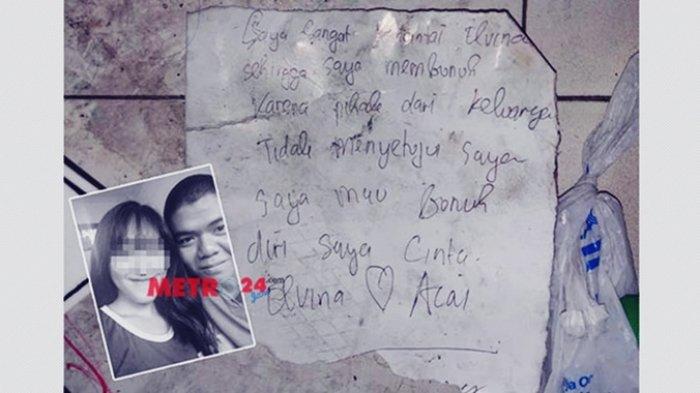 Saya sangat Elvina
sehingga saya membunuh
Karena pihak dari keluarga
Tidak menyetujui saya
saya mau Bunuh
diri saya Cinta.
Elvina ♡ Acai
METR 24